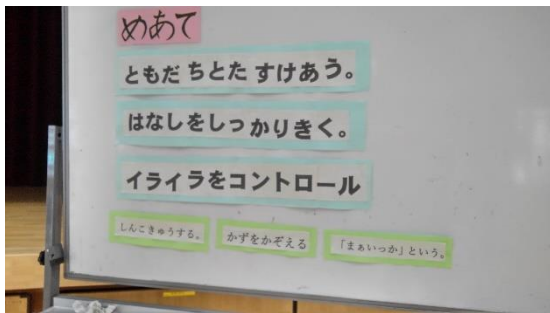 めあて
ともだちとたすけあう。
はなしをしっかりきく。
イライラをコントロール
しんこきゅうする。 かずをかぞえる 「まぁいっか」という。